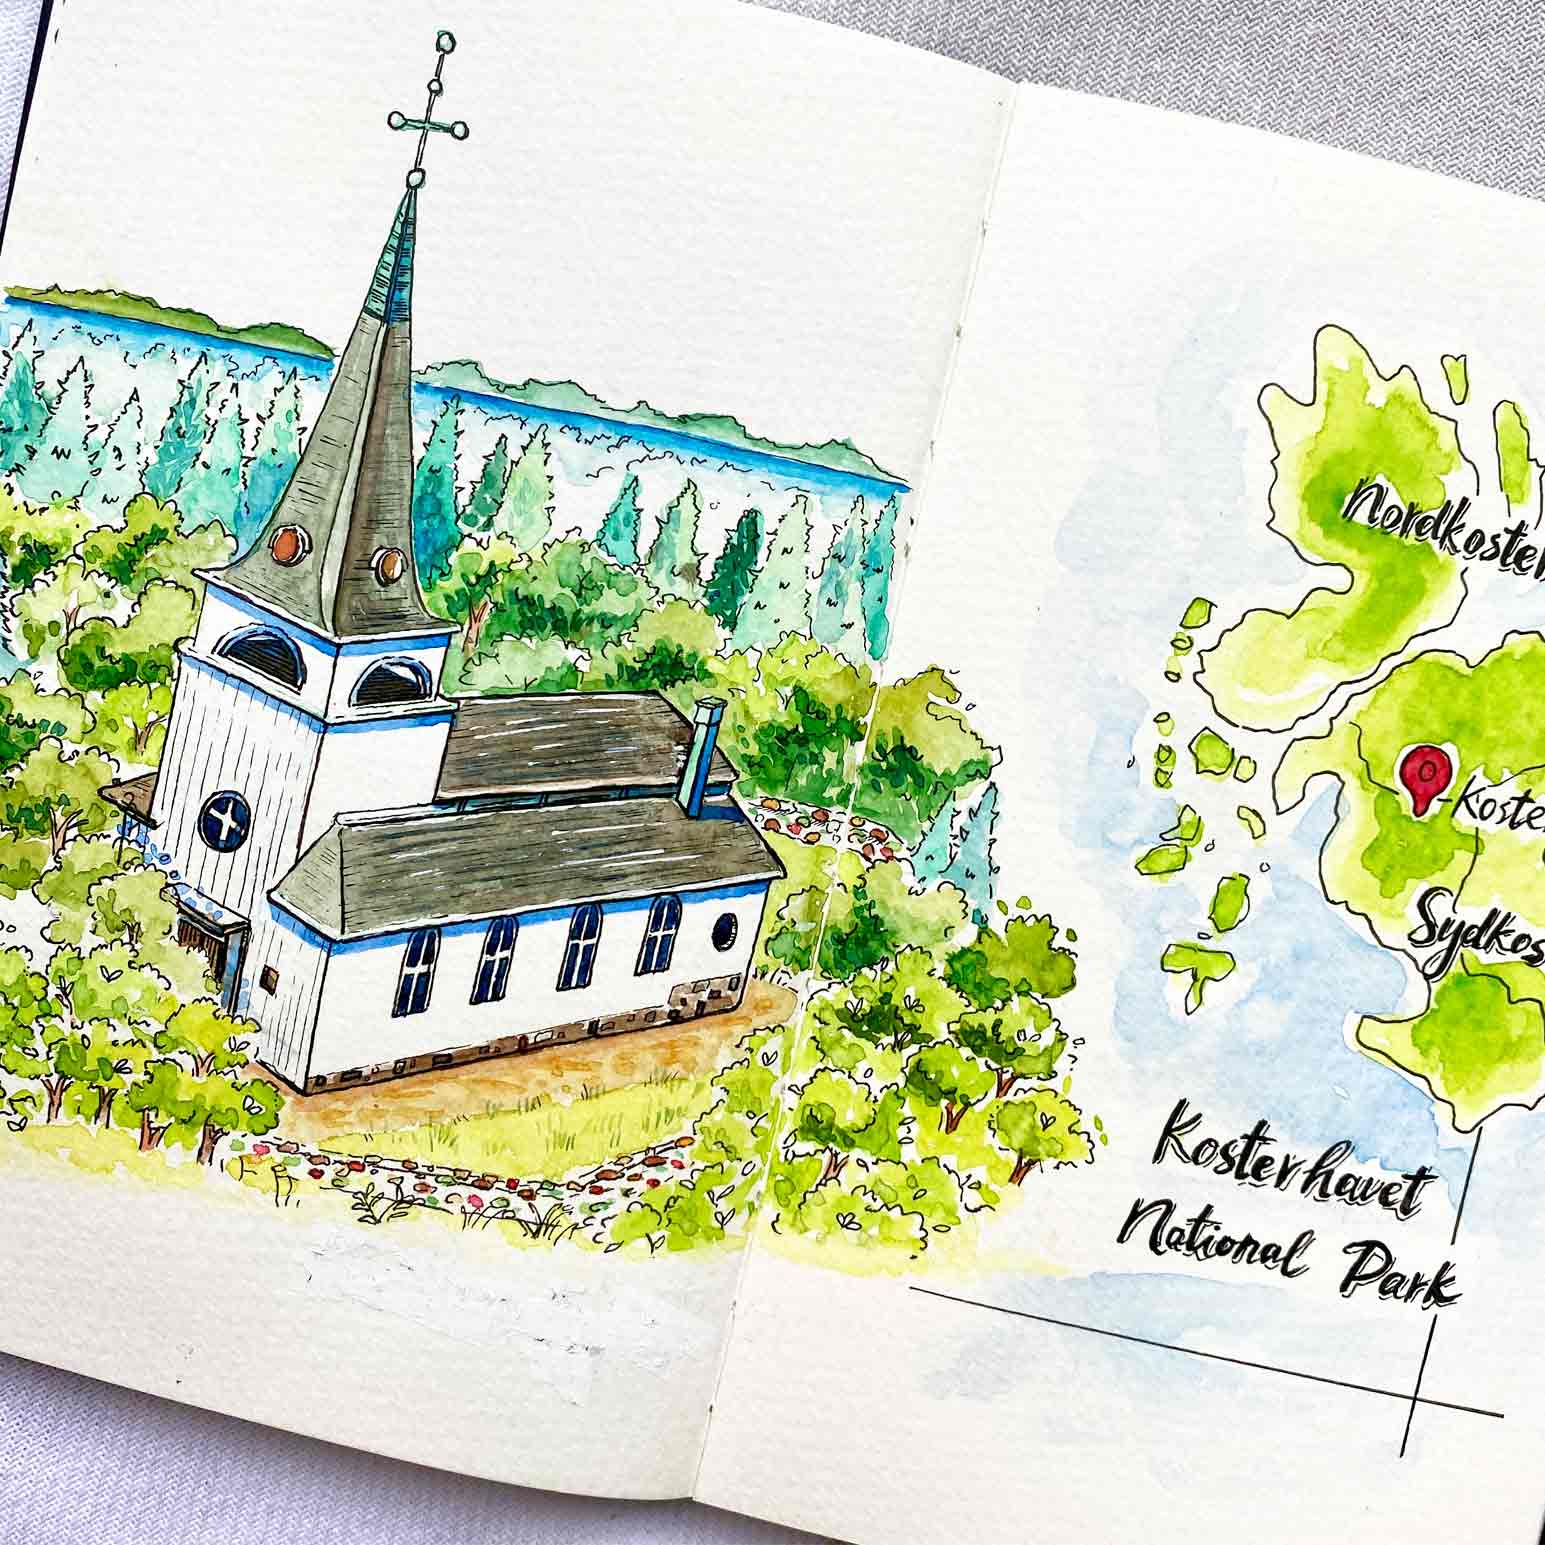 Nordkoster
Koste
Sydkos
Kosterhavet
National Park